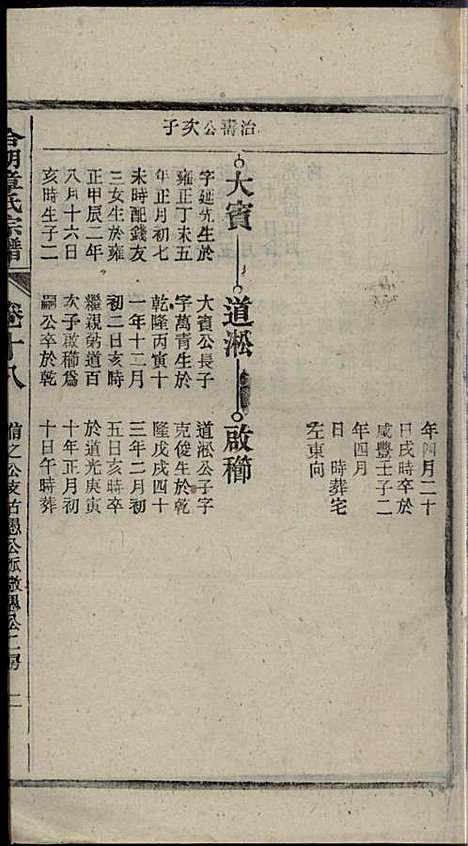 治壽公次子
年四月二十
日戌時卒於
咸豐壬子二
年四月
日 時葬宅
左東向
大賓
字延先生於
雍正丁未五
年正月初七
未時配錢友
三女生於雍
正甲辰二年
八月十六日
亥時生子二
道淞
大賓公長子
字萬青生於
乾隆丙寅十
一年十二月
初二日亥時
繼親房道百
次子啟櫛為
嗣公卒於乾
啟櫛
道淞公子字
克俊生於乾
隆戊戌四十
三年二月初
五日亥時卒
於道光庚寅
十年正月初
十日午時葬
章氏宗譜
卷十八
信之公支古愚公派敬愚公二房
二